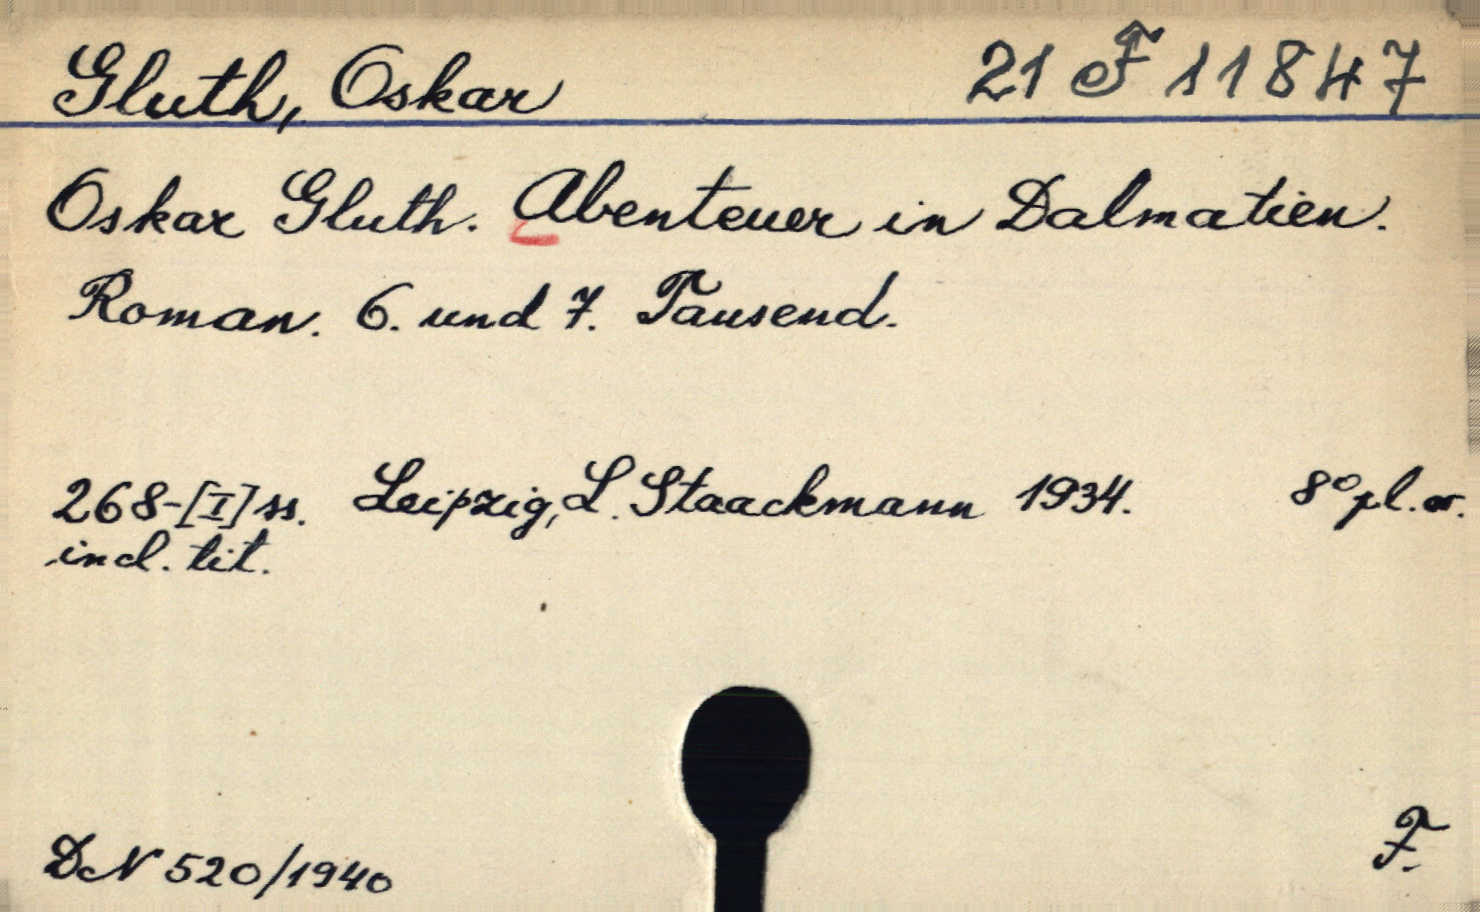 Gluth, Oskar 21 F 11847
Oskar Gluth. Abenteuer in Dalmatien.
Roman. 6. und 7. Tausend.
268-[I] ss. Leipzig, L. Staackmann 1934. 8° pl. or.
incl. tit.
DN 520/1940 F.